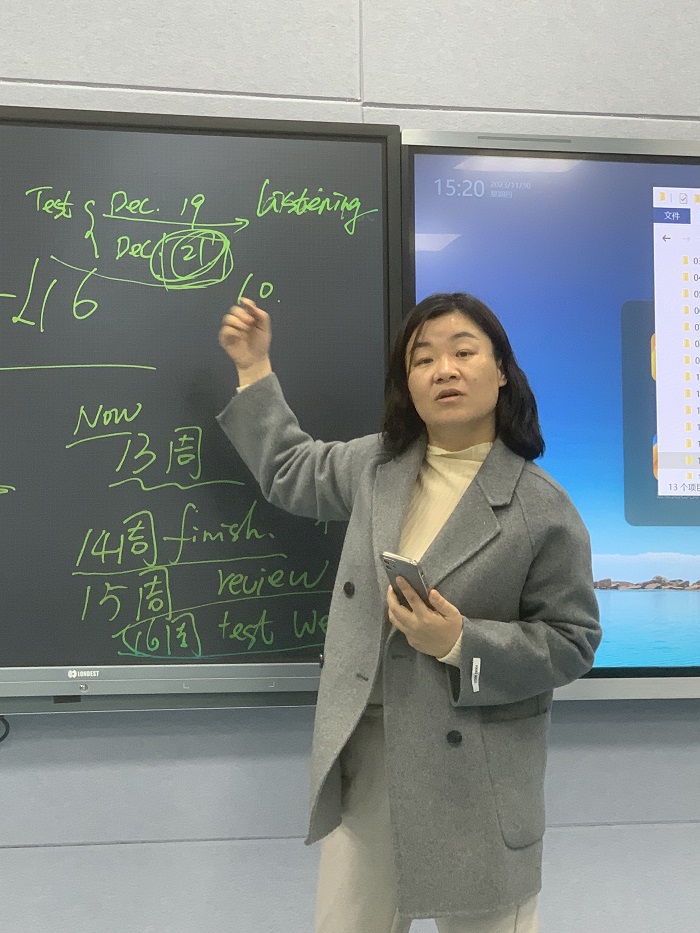 Test { Dec. 19 → Listening
Dec. 21
16
10.
Now
13周
14周 finish.
15周 review
16周 test We
LONBEST
15:20
2023/11/30
星期四
文件
13 个项目